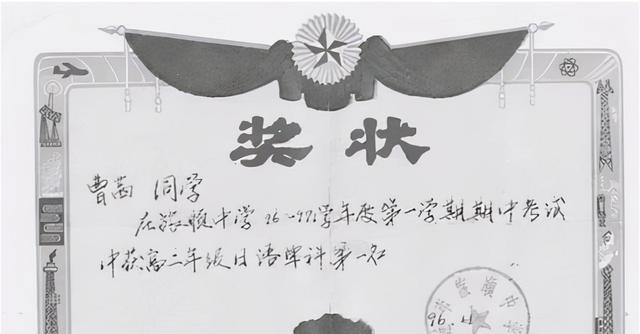 奖状
曹茜 同学
在旅顺中学96-97学年度第一学期期中考试
中获高二年级日语单科第一名
96.11